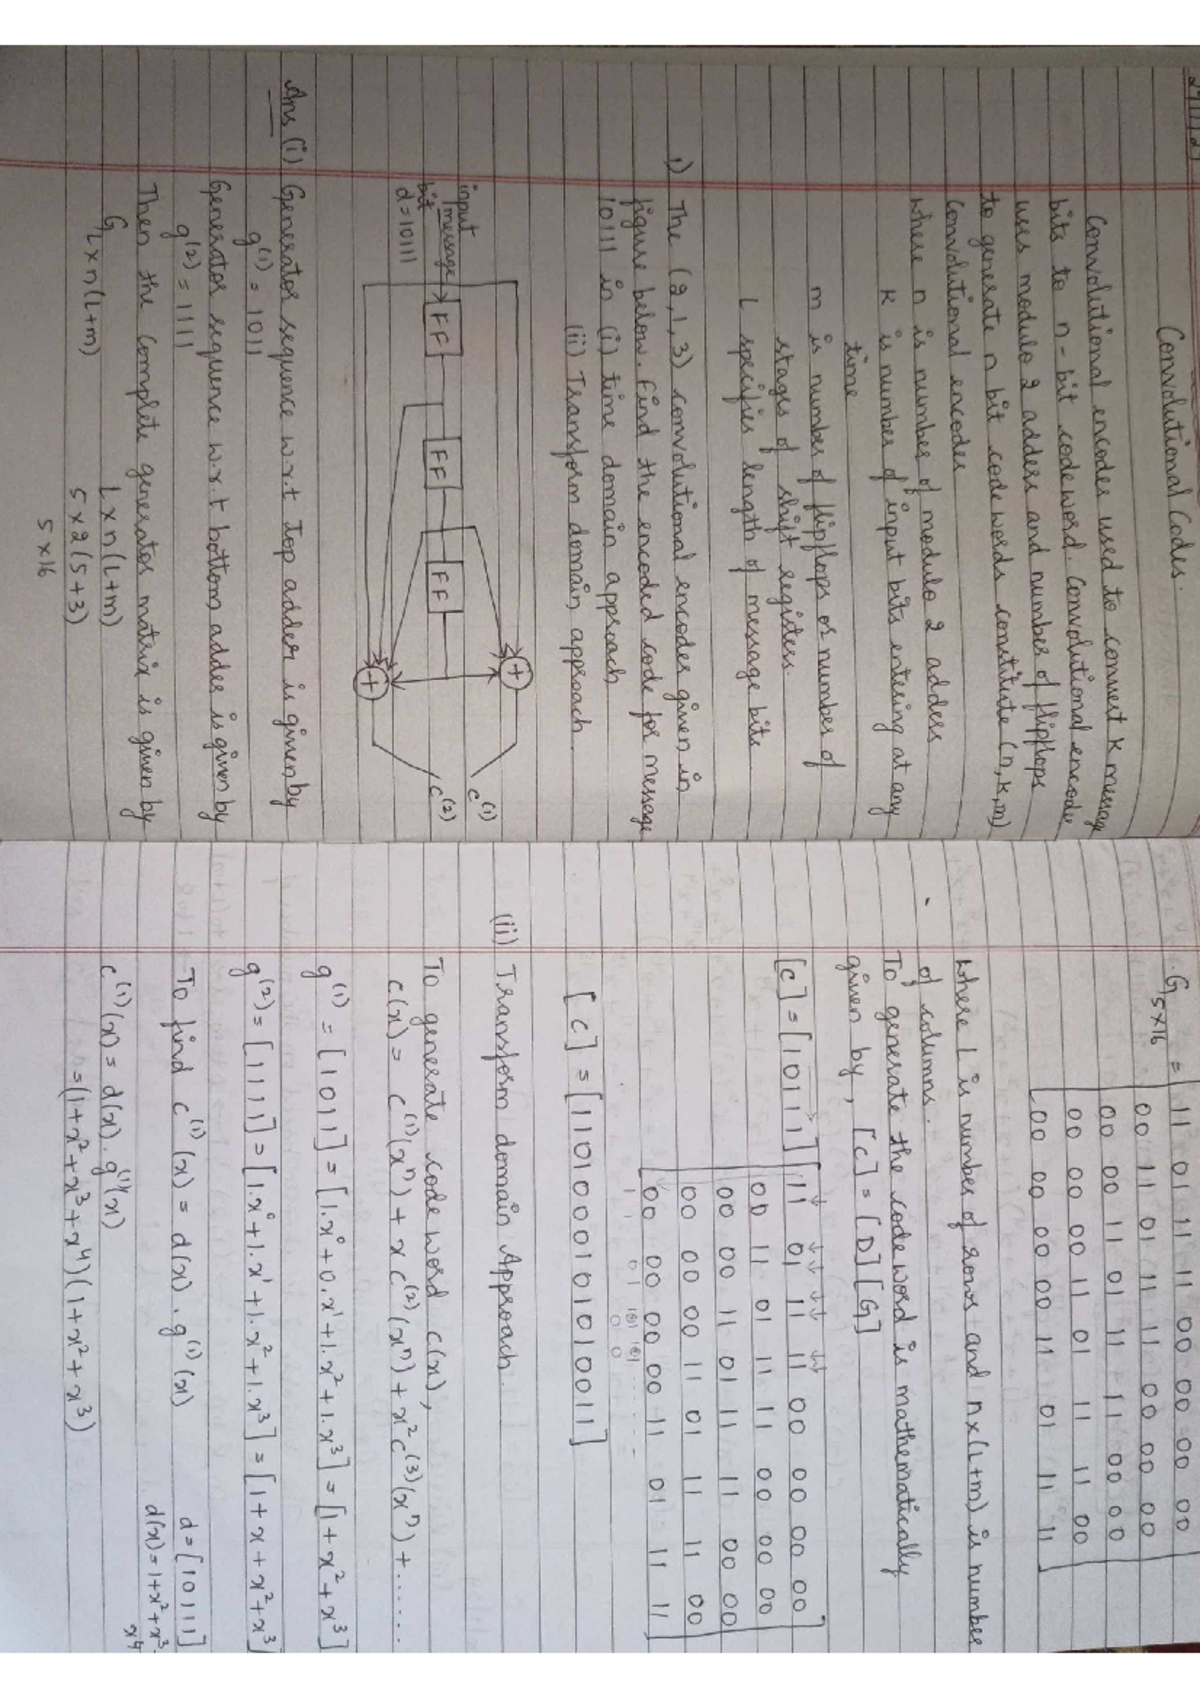 Convolutional Codes.
Convolutional encoder used to convert k message
bits to n-bit codeword. Convolutional encoder
uses modulo 2 adders and number of flipflops
to generate n bit code words constitute (n,k,m)
convolutional encoder
where n is number of modulo 2 adders
k is number of input bits entering at any
time
m is number of flipflops or number of
stages of shift registers.
L specifies length of message bits.
1) The (2,1,3) convolutional encoder given in
figure below. Find the encoded code for message
10111 in (i) time domain approach
(ii) Transform domain approach.
input
message
bit
d=10111
FF
FF
FF
+
+
c⁽¹⁾
c⁽²⁾
Ans (i) Generator sequence w.r.t Top adder is given by
g⁽¹⁾ = 1011
Generator sequence w.r.t bottom adder is given by
g⁽²⁾ = 1111
Then the complete generator matrix is given by
G L×n(L+m)
L×n(L+m)
5×2(5+3)
5×16
G 5×16 =
11 01 11 11 00 00 00 00
00 11 01 11 11 00 00 00
00 00 11 01 11 11 00 00
00 00 00 11 01 11 11 00
00 00 00 00 11 01 11 11
where L is number of rows and n×(L+m) is number
of columns.
To generate the codeword is mathematically
given by, [C] = [D][G]
[C] = [10111] [11 01 11 11 00 00 00 00
00 11 01 11 11 00 00 00
00 00 11 01 11 11 00 00
00 00 00 11 01 11 11 00
00 00 00 00 11 01 11 11]
[C] = [1101000101010011]
(ii) Transform domain Approach.
To generate code word c(x),
c(x) = c⁽¹⁾(xⁿ) + x c⁽²⁾(xⁿ) + x² c⁽³⁾(xⁿ) + ......
g⁽¹⁾ = [1011] = [1.x⁰ + 0.x¹ + 1.x² + 1.x³] = [1 + x² + x³]
g⁽²⁾ = [1111] = [1.x⁰ + 1.x¹ + 1.x² + 1.x³] = [1 + x + x² + x³]
To find c⁽¹⁾(x) = d(x). g⁽¹⁾(x)
d = [10111]
d(x) = 1 + x² + x³
x⁴
c⁽¹⁾(x) = d(x). g⁽¹⁾(x)
= (1 + x² + x³ + x⁴)(1 + x² + x³)